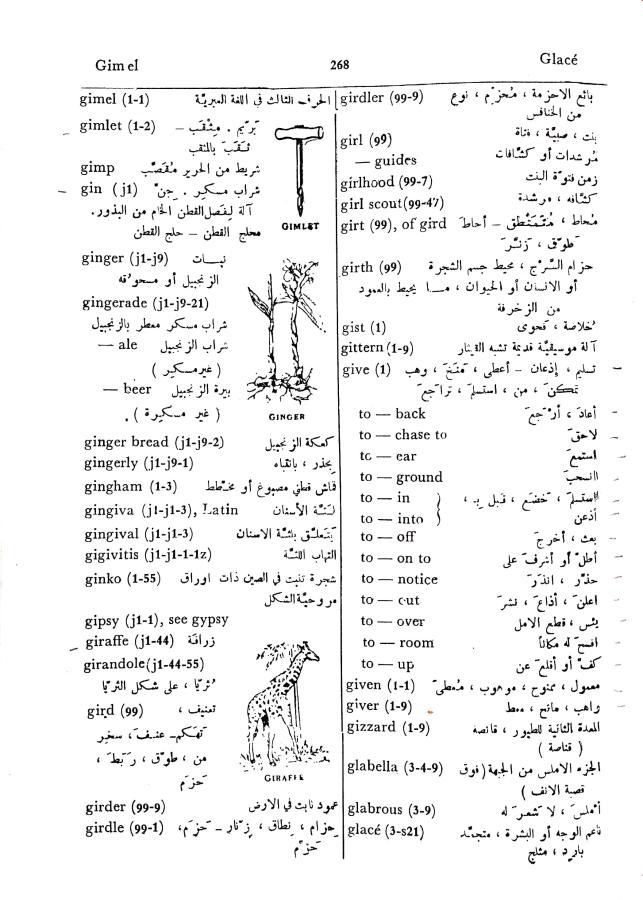 Gimel
268
Glacé
gimel (1-1) الحرف الثالث في اللغة العبرية
gimlet (1-2) بَرّيم . مِثْقَب –
ثَقَبَ بالمثقب
gimp شريط من الحرير مُقَصَّب
gin (j1) شراب مسكر . جن
آلة لفصل القطن الخام من البذور.
محلج القطن – حلج القطن
GIMLET
ginger (j1-j9) نبات
الزنجبيل أو مسحوقه
gingerade (j1-j9-21)
شراب مسكر معطر بالزنجبيل
— ale شراب الزنجبيل
(غير مسكر)
— beer بيرة الزنجبيل
( غير مسكرة ) .
GINGER
ginger bread (j1-j9-2) كعكة الزنجبيل
gingerly (j1-j9-1) بحذر ، بانتباه
gingham (1-3) قماش قطني مصبوغ أو مخطط
gingiva (j1-j1-3), Latin لثة الأسنان
gingival (j1-j1-3) يتعلق بلثة الاسنان
gigivitis (j1-j1-1-1z) التهاب اللثة
ginko (1-55) شجرة تنبت في الصين ذات اوراق
مروحية الشكل
gipsy (j1-1), see gypsy
giraffe (j1-44) زرافة
girandole(j1-44-55)
ثريا ، على شكل الثريا
gird (99) تعنيف ،
تهكم– عنف، سخر
من ، طوق ، ربط ،
حزم
GIRAFFE
girder (99-9) عمود ثابت في الارض
girdle (99-1) حزام ، نطاق ، زنار – حزم،
حزم
girdler (99-9) بائع الاحزمة ، مُحزم ، نوع
من الخنافس
girl (99) بنت ، صبية ، فتاة
— guides مرشدات أو كشافات
girlhood (99-7) زمن فتوة البنت
girl scout(99-47) كشافه ، مرشدة
girt (99), of gird مُحاط ، مُتمنطق – أحاط
طوق ، زنر
girth (99) حزام السرج ، محيط جسم الشجرة
أو الانسان أو الحيوان ، ما يحيط بالعمود
من الزخرفة
gist (1) خلاصة ، فحوى
gittern (1-9) آلة موسيقية قديمة تشبه القيثار
give (1) تسليم ، إذعان – أعطى ، منح ، وهب
تمكن ، من ، استسلم ، تراجع
to — back أعاد ، أرجع
to — chase to لاحق
to — ear استمع
to — ground انسحب
to — in استسلم ، خضع ، قبل بـ ،
to — into أذعن
to — off بعث ، أخرج
to — on to أطل أو أشرف على
to — notice حذر ، انذر
to — out اعلن ، أذاع ، نشر
to — over يئس ، قطع الامل
to — room افسح له مكاناً
to — up كف أو أقلع عن
given (1-1) معمول ، ممنوح ، موهوب ، مُعطى
giver (1-9) واهب ، مانح ، معط
gizzard (1-9) المعدة الثانية للطيور ، قانصة
( قناصة )
glabella (3-4-9) الجزء الاملس من الجبهة (فوق
قصبة الانف )
glabrous (3-9) أملس ، لا شعر له
glacé (3-s21) ناعم الوجه أو البشرة ، متجمّد
بارد ، مثلج